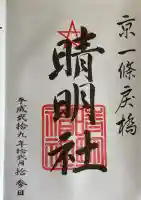 京一條戻橋
晴明社
平成弐拾九年拾弐月拾参日